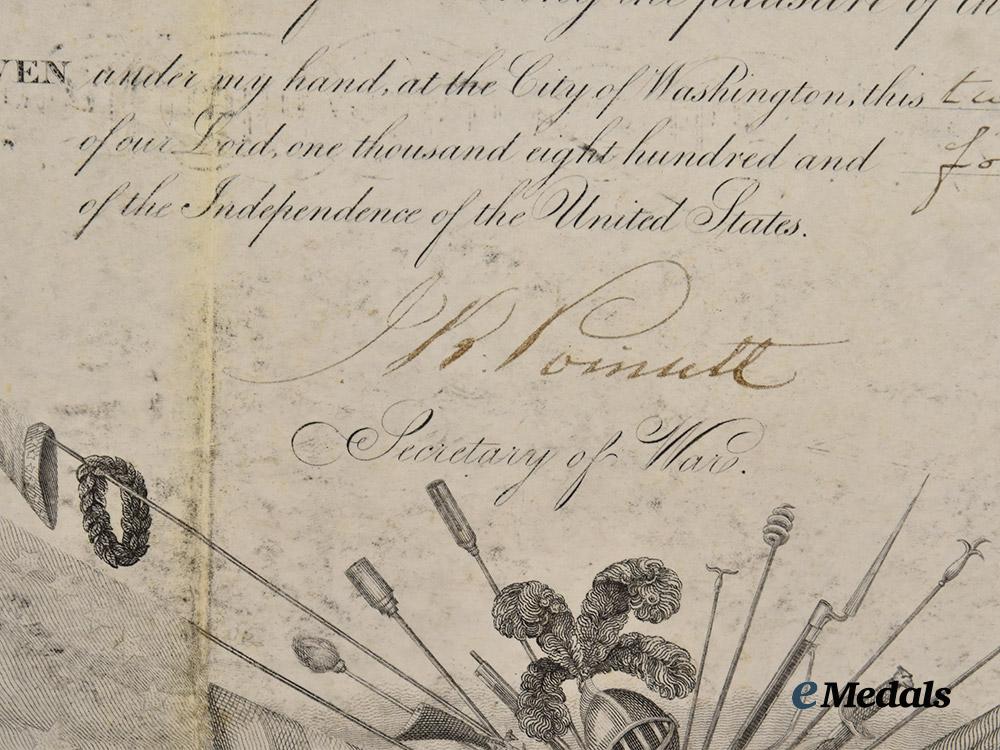 during the pleasure of the
VEN under my hand, at the City of Washington, this tw
of our Lord, one thousand eight hundred and fo
of the Independence of the United States.
J R. Poinsett
Secretary of War.
eMedals